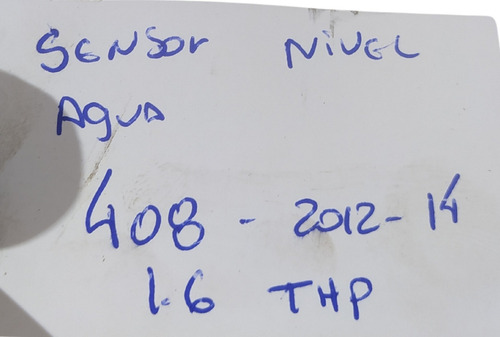 SENSOR NIVEL
AGUA
408 - 2012-14
1.6 THP